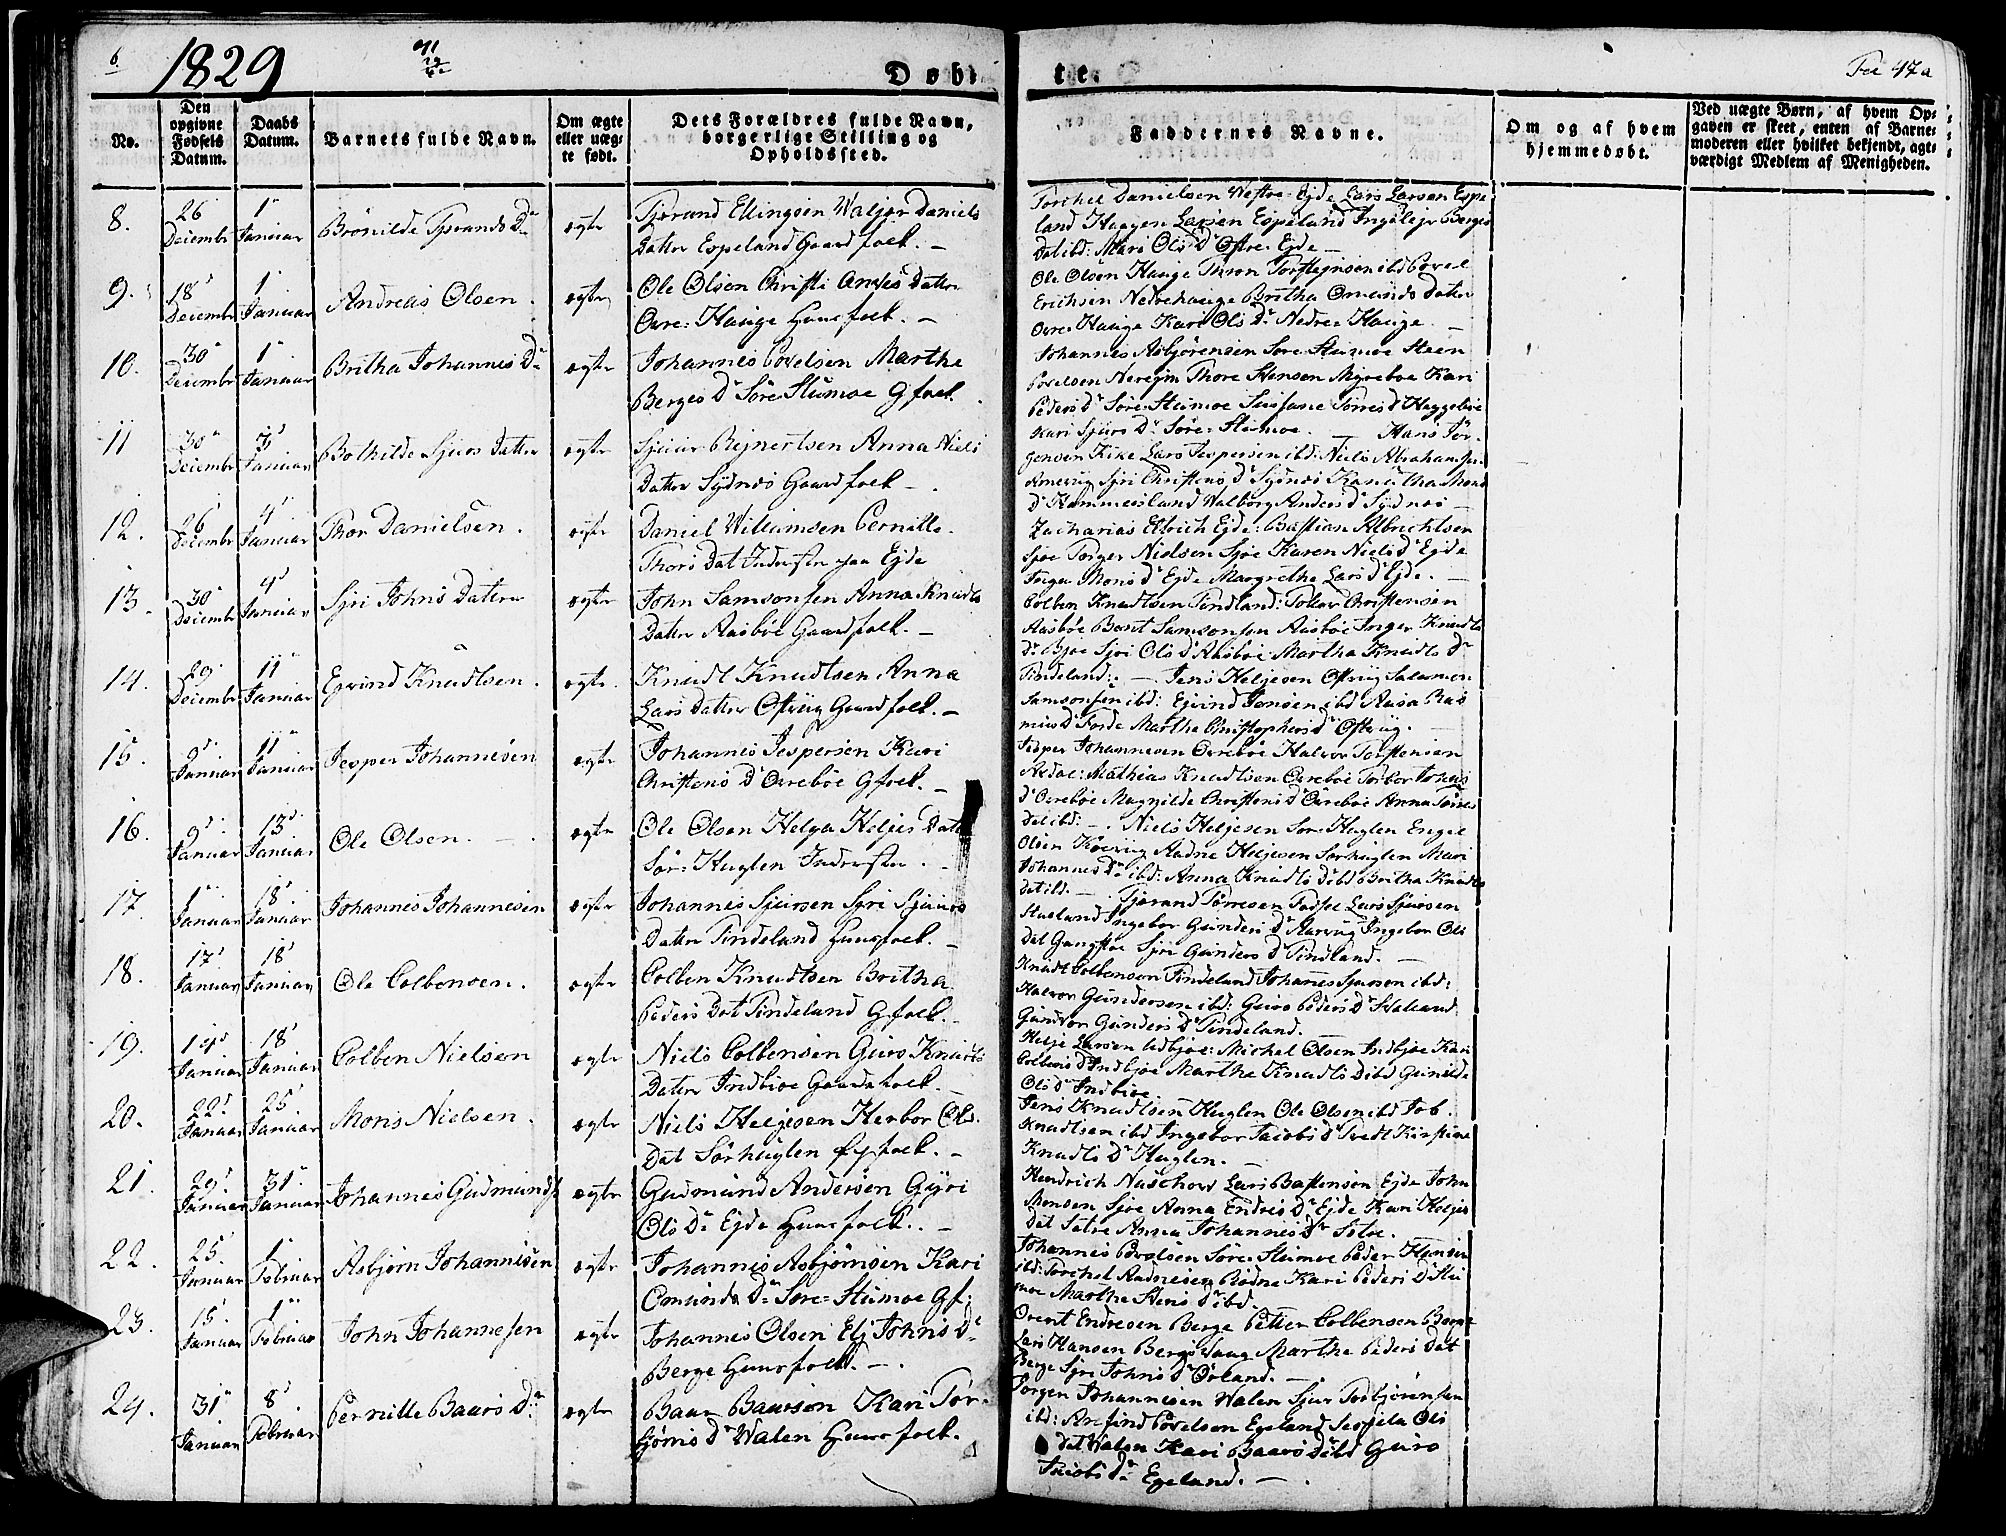 6.
1829
41
19
62
Døb
te.
Fol 47a
No.
Den opgivne Fødsels Datum.
Daabs Datum.
Barnets fulde Navn.
Om ægte eller uægte født.
Dets Forældres fulde Navn, borgerlige Stilling og Opholdssted.
Faddernes Navne.
Om og af hvem hjemmedøbt.
Ved uægte Børn, af hvem Opgaven er skeet, enten af Barnemoderen eller hvilket bekjendt, agtværdigt Medlem af Menigheden.
8. 26 Decembr 1 Januar Brönilde Tjorands Dr ægte Tjorand Ellingsen Waljer Daniels
Datter Espeland Gaardfolk. –
Torchel Danielsen Westre Ejde Lars Larsen Espe
land Haagen Larsen Espeland Ingeleje Berges
Dat ibd: Mari Ols Dr Østre Ejde –
9. 18 Decembr 1 Januar Andreas Olsen. ægte Ole Olsen Christi Anders Datter
Øvre Hauge Huusfolk. –
Ole Olsen Hauge Thron Torstejnsen ibd Povel
Erichsen Nedrehauge Britha Omunds Datter
Øvre Hauge Kari Ols Dr Nedre Hauge. –
10. 30 Decembr 1 Januar Britha Johannes Dr ægte Johannes Povelsen Marthe
Berges Dr Söre Stumoe Gfolk.
Johannes Asbjörensen Söre Stumoe Steen
Povelsen Neregin Thore Stensen Myreboe Kari
Peders Dr Söre Stumoe Sussane Torres Dr Heggeboe
Kari Sjurs Dr Söre Stumoe. –
11 30 Decembr 3 Januar Bothilde Sjurs Datter ægte Sjuur Rejnertsen Anna Niels
Datter Sydnes Gaardfolk – .
Hans Jör-
gensen Kike Lars Jespersen ibd: Niels Abrahamsen
Sjri Christens Dr Sydnes Mons
Dr Hammersland Walborg Anders Dr Sydnes –
12. 26 Decembr 4 Januar Thor Danielsen. ægte Daniel Willumsen Pernille
Thors Dat Inderster paa Ejde
Zacharias Elbrich Ejde: Bastian Albrichtsen
Sjoe Torger Nielsen Sjoe Karen Niels Dr Ejde
Inger Mons Dr Ejde Margrethe Lars Dr Ejde. –
13. 30 Decembr 4 Januar Sjri Johns Datter ægte John Samsonsen Anna Knudts
Datter Aasböe Gaardfolk. –
Colben Knudtsen Tindland: Tollev Christensen
Aasböe Bent Samsonsen Aasböe Inger Knudts
Dr Bjoe Sjri Ols Dr Aasböe Martha Knudts Dr
Tindeland: –
14. 29 Decembr 11 Januar Ejvind Knudtsen. ægte. Knudt Knudtsen Anna
Lars Datter Østvig Gaardfolk. –
Jens Heljesen Østvig Salamon
Samsonsen ibd: Ejvind Jonsen ibd Aasa Ras
mus Dr Forde Marthe Christophers Dr Østvig. –
15. 9 Januar 11 Januar Jesper Johannesen ægte Johannes Jespersen Kari
Christens Dr Ovreböe Gfolk. –
Jesper Johannesen Ovreböe Halvor Torstensen
Axdal: Mathias Knudtsen Ovreböe Torbor Johns
Dr Ovreböe Magnilde Christens Dr Ovreböe Anna Torres
Dat ibd: – .
16. 9 Januar 13 Januar Ole Olsen. – . ægte Ole Olsen Helga Heljes Datt
Sör Huglen Inderster . –
Niels Heljesen Sör Huglen Engel
Olsen Köevig Aadne Heljesen Sörhuglen Mari
Johannes Dr ibd: Anna Knudts Dr ibd Britha Knudts
Dat ibd. –
17. 1 Januar 18 Januar Johannes Johannesen ægte Johannes Sjursen Sjri Sjuurs
Datter Tindeland Huusfolk. –
Tjorand Tørresen Tadsel Lars Sjursen
Ingebor Gunders Dr Aarvig Ingebor Ols
Dat Gangstoe Sjri Gunders Dr Tindland. –
18. 17 Januar 18 Januar Ole Colbensen. ægte Colben Knudtsen Britha
Peders Dat Tindeland Gfolk. –
Knudt Colbensen Tindeland Johannes Sjursen ibd:
Halvor Gundersen ibd: Guro Peders Dr Haleland
Gundvor Gunders Dr Tindeland. –
19. 14 Januar 18 Januar Colben Nielsen ægte Niels Colbensen Guro Knudts
Datter Indbjoe Gaardfolk. –
Helje Larsen Udbjoe: Michel Olsen Indbjoe Kari
Colbens Dr Indbjoe Marthe Knudts D ibd Gunilde
Ols Dr Indbjoe.
20. 22 Januar 25 Januar Mons Nielsen. ægte Niels Heljesen Herbor Ols
Dat Sörhuglen Gfolk. –
Jens Knudtsen Huglen Ole Olsen ibd Job.
Knudtsen ibd Ingebor Jacobs Dr Tvedt Kirstine
Knudts Dr Huglen. –
21. 29 Januar 31 Januar Johannes Gudmunds. ægte Gudmund Andersen Gyri
Ols Dr Ejde Huusfolk. –
Hendrich Naschow Lars Bastensen Ejde John
Monsen Sjoe Anna Endres Dr Ejde Kari Heljes
Dat Setre Anna Johannes Dr Setre.
22. 25 Januar 1 Februar Asbjörn Johannesen ægte Johannes Asbjörnsen Kari
Omunds Dr Söre Stumoe Gf:
Johannes Povelsen Söre Stumoe Peder Hansen
ibd: Torchel Aadnesen Rödne Kari Peders Dr Stu
moe Marthe Stens Dr ibd.
23. 15 Januar 1 Februar John Johannesen ægte Johannes Olsen Elj Johns Dr
Berge Huusfolk. – .
Orent Endresen Berge Petter Colbensen Berge
Lars Hansen Berge Marthe Peders Dat
Berge Sjri Johns Dr Orland. –
24. 31 Januar 8 Februar Pernille Baars Dr ægte Baar Baarson Kari Tor-
björns Dr Walen Huusfolk.
Jørgen Johannesen Walen Sjur Torbjörnsen
ibd: Arnfind Povelsen Egeland Seesjela Ols
Dat Walen Kari Baars D ibd Guro
Jacobs Dr Egeland. – .